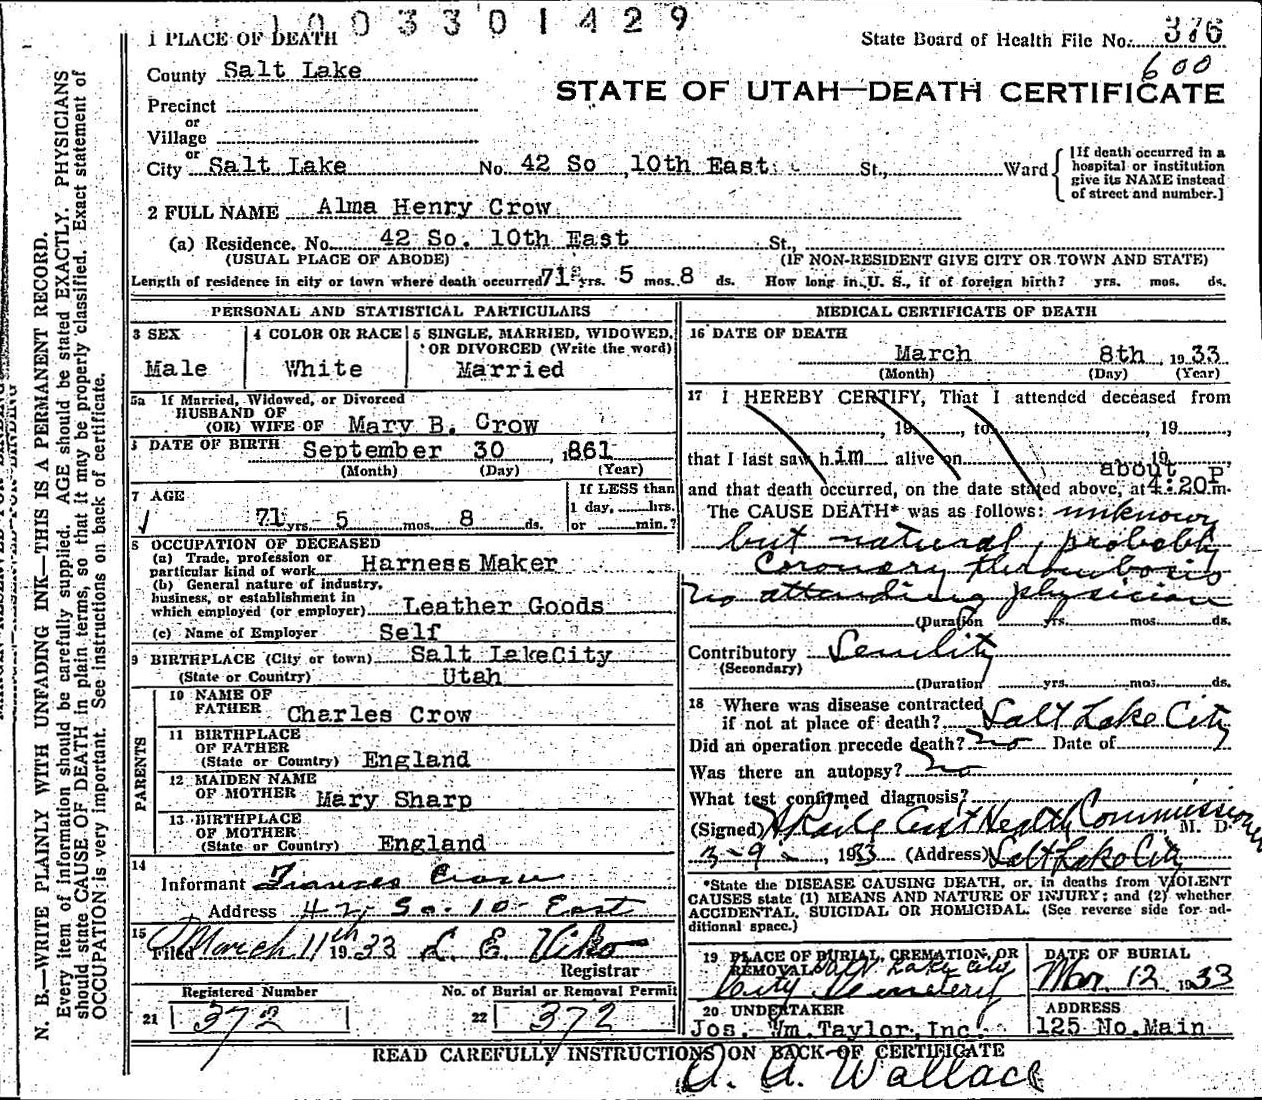 1003301429
1 PLACE OF DEATH
State Board of Health File No. 376
600
County Salt Lake
STATE OF UTAH—DEATH CERTIFICATE
Precinct
or
Village
or
City Salt Lake No. 42 So 10th East St., Ward
[If death occurred in a
hospital or institution
give its NAME instead
of street and number.]
2 FULL NAME Alma Henry Crow
(a) Residence. No. 42 So. 10th East St.,
(USUAL PLACE OF ABODE) (IF NON-RESIDENT GIVE CITY OR TOWN AND STATE)
Length of residence in city or town where death occurred 71 yrs. 5 mos. 8 ds. How long in U. S., if of foreign birth? yrs. mos. ds.
PERSONAL AND STATISTICAL PARTICULARS
3 SEX
Male
4 COLOR OR RACE
White
5 SINGLE, MARRIED, WIDOWED,
OR DIVORCED (Write the word)
Married
5a If Married, Widowed, or Divorced
HUSBAND OF
(OR) WIFE OF Mary B. Crow
DATE OF BIRTH September 30, 1861
(Month) (Day) (Year)
7 AGE
71 yrs. 5 mos. 8 ds.
If LESS than
1 day, hrs.
or min.?
8 OCCUPATION OF DECEASED
(a) Trade, profession or
particular kind of work Harness Maker
(b) General nature of industry,
business, or establishment in
which employed (or employer) Leather Goods
(c) Name of Employer Self
9 BIRTHPLACE (City or town) Salt Lake City
(State or Country) Utah
PARENTS
10 NAME OF
FATHER Charles Crow
11 BIRTHPLACE
OF FATHER
(State or Country) England
12 MAIDEN NAME
OF MOTHER Mary Sharp
13 BIRTHPLACE
OF MOTHER
(State or Country) England
14
Informant Frances Crow
Address 42 So. 10 East
15
Filed March 11th 1933 L. E. Viko
Registrar
Registered Number
21 372
No. of Burial or Removal Permit
22 372
MEDICAL CERTIFICATE OF DEATH
16 DATE OF DEATH
March 8th, 1933
(Month) (Day) (Year)
17 I HEREBY CERTIFY, That I attended deceased from
, 19 , to , 19 ,
that I last saw him alive on 19
about
and that death occurred, on the date stated above, at 4:20 P m.
The CAUSE DEATH* was as follows: unknown
but natural, probably
Coronary thrombosis
no attending physician
(Duration yrs. mos. ds.
Contributory Senility
(Secondary)
(Duration yrs. mos. ds.
18 Where was disease contracted
if not at place of death? Salt Lake City
Did an operation precede death? no Date of
Was there an autopsy? no
What test confirmed diagnosis?
(Signed) Health Commissioner M. D.
3-9-, 1933 (Address) Salt Lake City
*State the DISEASE CAUSING DEATH, or, in deaths from VIOLENT
CAUSES state (1) MEANS AND NATURE OF INJURY; and (2) whether
ACCIDENTAL, SUICIDAL OR HOMICIDAL. (See reverse side for ad-
ditional space.)
19 PLACE OF BURIAL, CREMATION, OR
REMOVAL Salt Lake City
City Cemetery
DATE OF BURIAL
Mar. 12 1933
20 UNDERTAKER
Jos. Wm. Taylor, Inc.
ADDRESS
125 No. Main
READ CAREFULLY INSTRUCTIONS ON BACK OF CERTIFICATE
A. A. Wallace
N. B.—WRITE PLAINLY WITH UNFADING INK—THIS IS A PERMANENT RECORD.
Every item of information should be carefully supplied. AGE should be stated EXACTLY. PHYSICIANS
should state CAUSE OF DEATH in plain terms, so that it may be properly classified. Exact statement of
OCCUPATION is very important. See instructions on back of certificate.